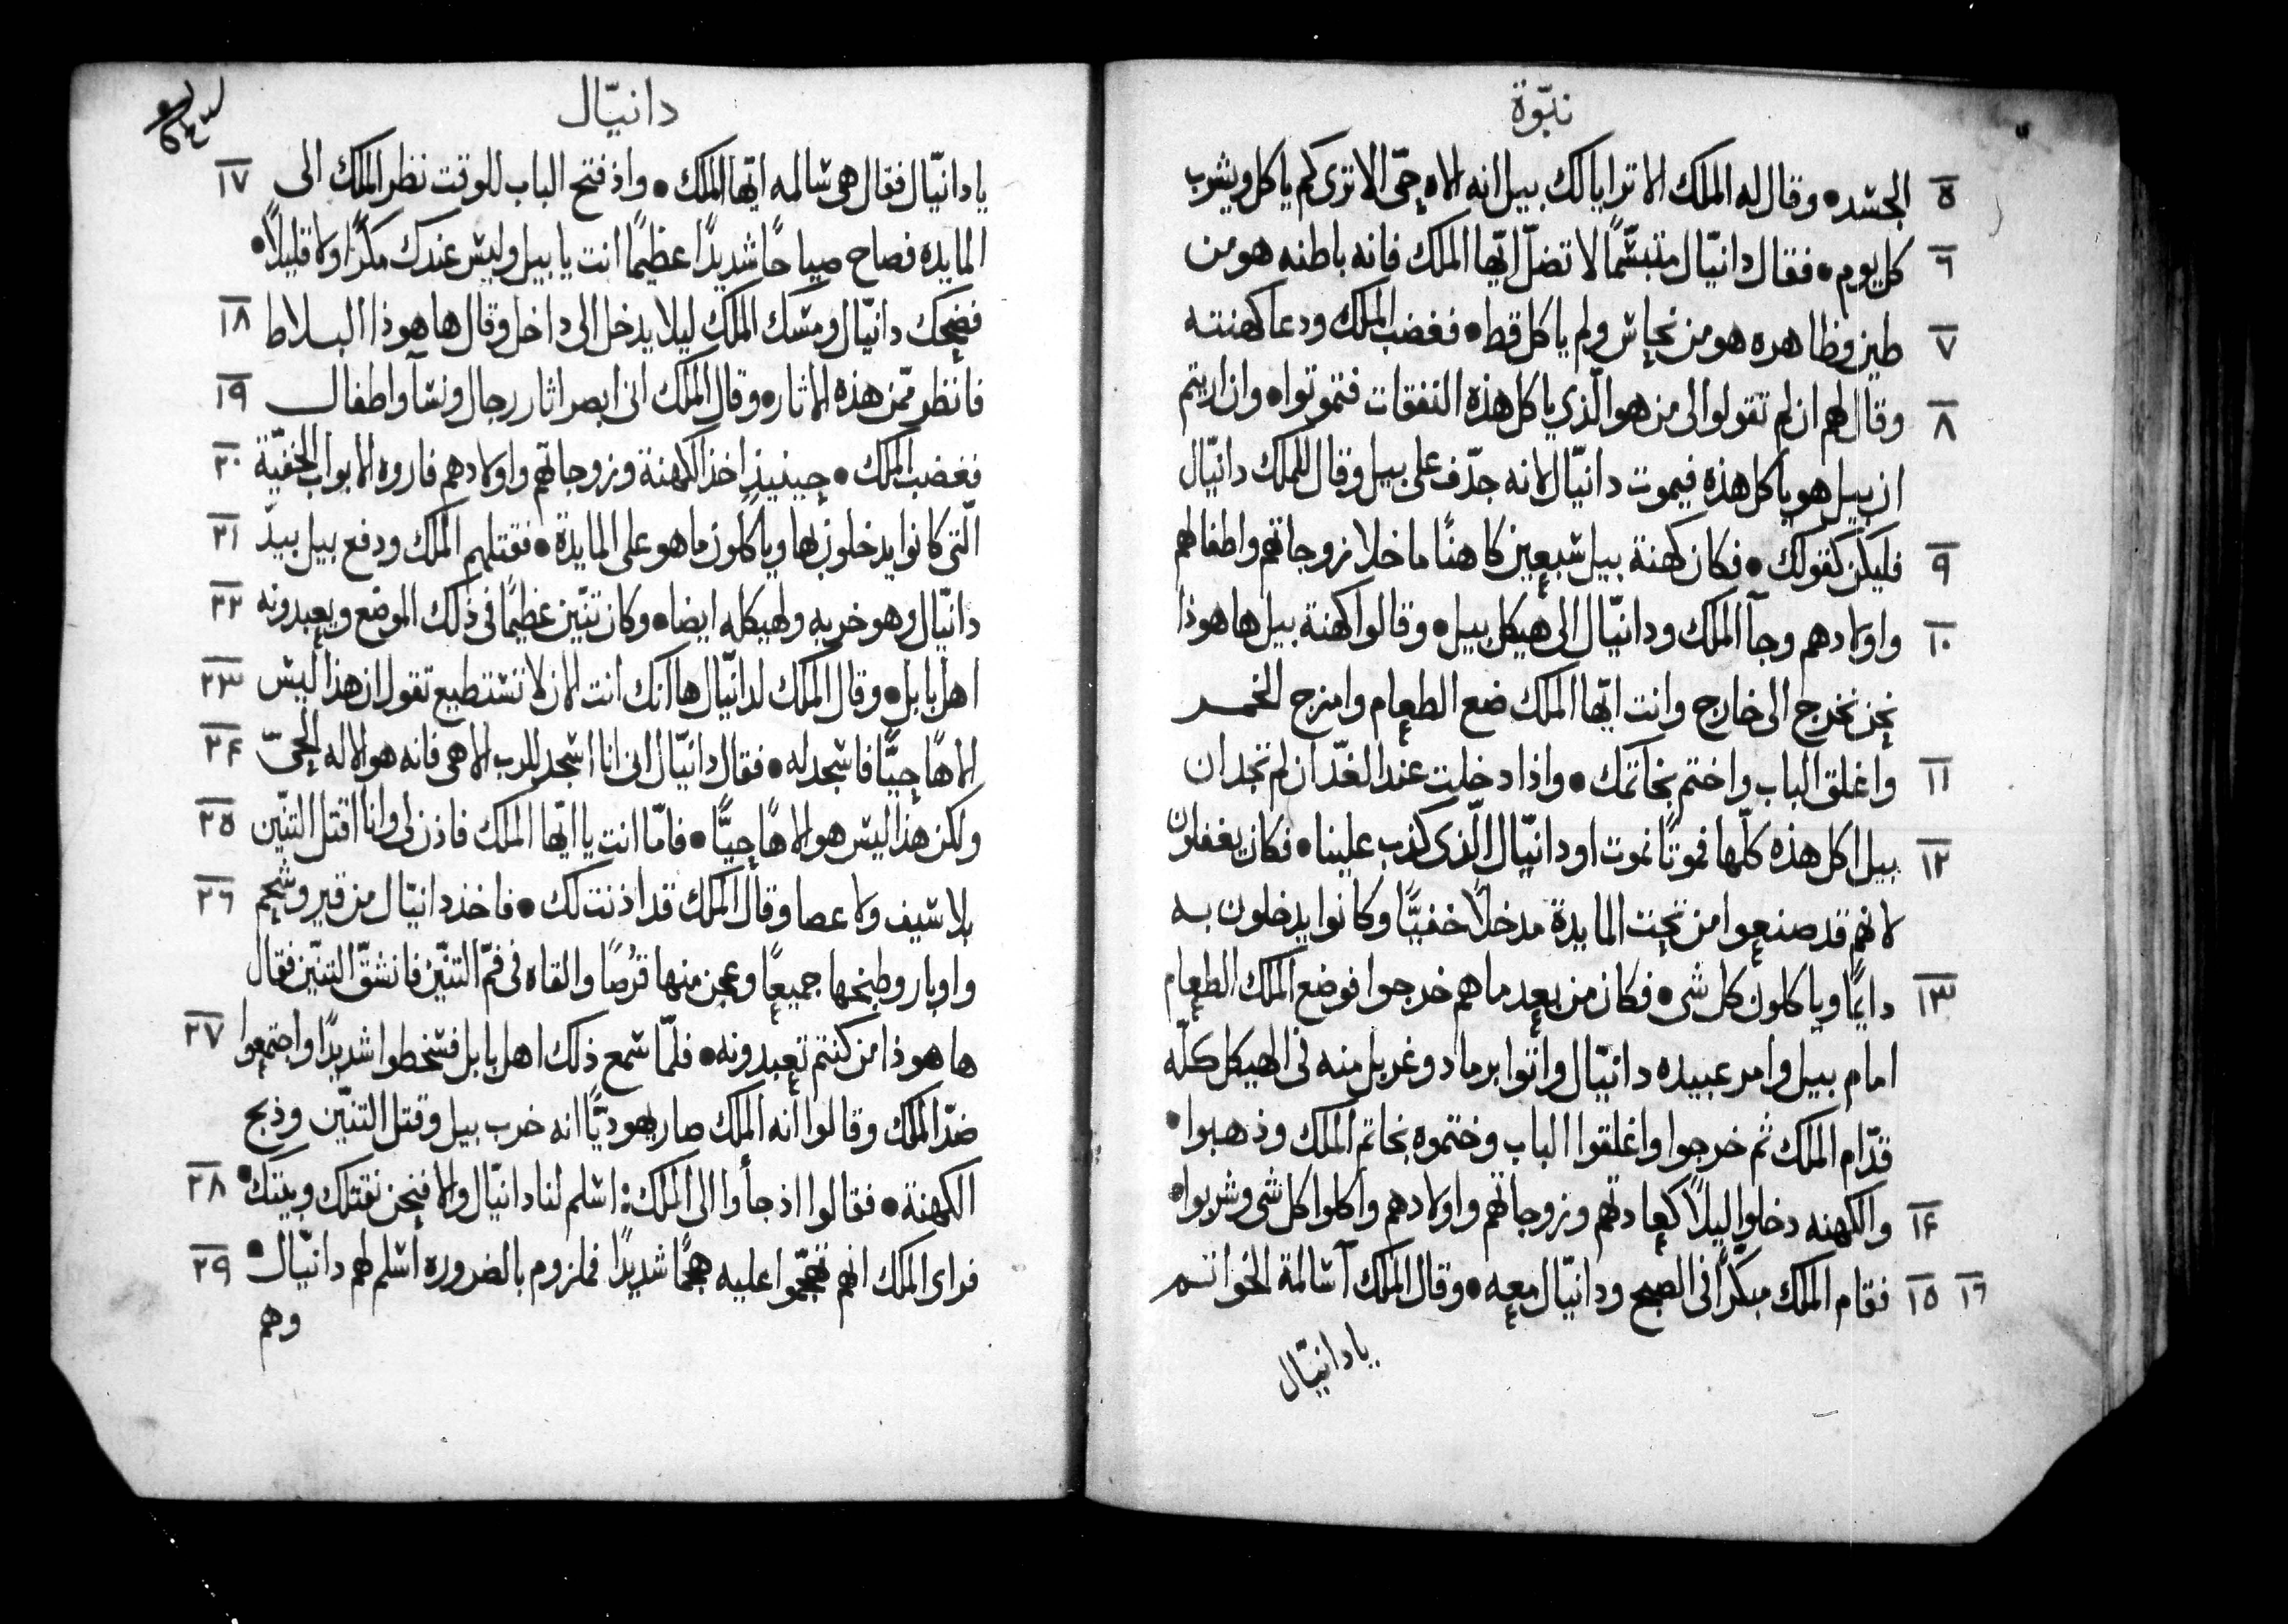 نبوّة
٥ الجسد • وقال له الملك الا ترايا لك بييل انه لاه حيّ الا ترى كم ياكل ويشرب
٦ كل يوم • فقال دانيّال متبسّمًا لا تضلّ ايّها الملك فانه باطنه هو من
٧ طين وظاهره هو من نحاس ولم ياكل قط • فغضب الملك ودعا كهنته
٨ وقال لهم ان لم تقولوا لى من هو الّذي ياكل هذه النفقات فتموتوا • وان اريتم
ان بييل هو ياكل هذه فيموت دانيّال لانه جدّف على بييل وقال للملك دانيّال
٩ فليكن كقولك • فكان كهنة بييل سبعين كاهنًا ما خلا زوجاتهم واطفالهم
١٠ واولادهم وجآ الملك ودانيّال الى هيكل بييل • وقالوا كهنة بييل ها هوذا
نحن نخرج الى خارج وانت ايّها الملك ضع الطعام وامزج الخمر
١١ واغلق الباب واختم بخاتمك • واذا دخلت عند الغد ان لم تجد ان
١٢ بييل اكل هذه كلّها فموتًا نموت او دانيّال الّذى كذب علينا • فكان يغفلون
لانهم قد صنعوا من تحت المايدة مدخلًا خفيًّا وكانوا يدخلون به
١٣ دايمًا وياكلون كل شى • فكان من بعد ما هم خرجوا فوضع الملك الطعام
امام بييل وامر عبيده دانيّال واتوا برماد وغربل منه فى الهيكل كلّه
قدّام الملك ثم خرجوا واغلقوا الباب وختموه بخاتم الملك وذهبوا •
١۴ والكهنه دخلوا ليلًا كعادتهم وزوجاتهم واولادهم واكلوا كل شى وشربوا •
١٦ ١٥ فقام الملك مبكّرًا فى الصبح ودانيّال معه • وقال الملك آسالمة الخواتم
يا دانيّال
دانيّال
يا دانيّال فقال هى سالمه ايّها الملك • واذ فتح الباب للوقت نظر الملك الى ١٧
المايده فصاح صياحًا شديدًا عظيمًا انت يا بييل وليس عندك مكرًا ولا قليلًا •
فضحك دانيّال ومسك الملك ليلا يدخل الى داخل وقال ها هوذا البلاط ١٨
فانظر ممّن هذه الاثار • وقال الملك انى ابصر اثار رجال ونسآ واطفال ١٩
فغضب الملك • حينيذٍ اخذ الكهنة وزوجاتهم واولادهم فاروه الابواب الخفيّة ٢٠
الّتى كانوا يدخلون بها وياكلون ما هو على المايدة • فقتلهم الملك ودفع بييل بيد ٢١
دانيّال وهو خربه ولهيكله ايضا • وكان تنّين عظيمًا فى ذلك الموضع ويعبدونه ٢٢
اهل بابل • وقال الملك لدانيّال ها انك انت الان لا تستطيع تقول ان هذا ليس ٢٣
لاهًا حيًّا فاسجد له • فقال دانيّال انى انا اسجد للرب الاهى فانه هو الاله الحىّ ٢۴
ولكن هذا ليس هو لاهًا حيًّا • فامّا انت يا ايّها الملك فاذن لى وانا اقتل التنّين ٢٥
بلا سيف ولا عصا وقال الملك قد اذنت لك • فاخذ دانيّال من قير وشحم ٢٦
واوبار وطبخها جميعًا وعجن منها قرُصًا والقاه فى فمّ التنّين فانشقّ التنّين فقال
ها هوذا من كنتم تعبدونه • فلمّا سمع ذلك اهل بابل فسخطوا شديدًا واجتمعوا ٢٧
ضدّ الملك وقالوا انه الملك صار يهوديًّا انه خرب بييل وقتل التنّين وذبح
الكهنة • فقالوا اذ جأوا الى الملك : اسلم لنا دانيّال والا فنحن نقتلك وبيتك • ٢٨
فراى الملك انهم تهجّموا عليه هجمًا شديدًا فملزوم بالضروره اسلم لهم دانيّال • ٢٩
وهم